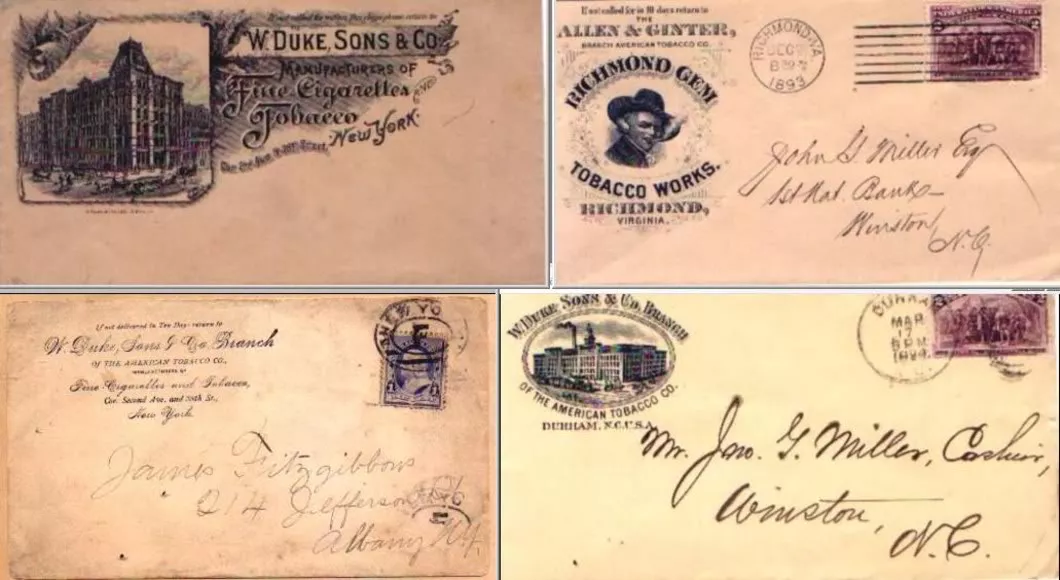 If not called for within Five days please return to
W. DUKE, SONS & CO.
MANUFACTURERS OF
Fine Cigarettes
Tobacco
NEW YORK.
If not called for in 10 days return to
THE
ALLEN & GINTER,
BRANCH AMERICAN TOBACCO CO.
RICHMOND GEM
TOBACCO WORKS.
RICHMOND,
VIRGINIA.
RICHMOND, VA.
DEC
1893
John G. Miller Esq
1st Nat. Bank
Winston
N.C.
If not delivered in Ten Days return to
W. Duke, Sons & Co. Branch
OF THE AMERICAN TOBACCO CO.,
MANUFACTURERS OF
Fine Cigarettes and Tobacco,
Cor. Second Ave. and 38th St.,
New York.
NEW YO
James Fitzgibbons
214 Jefferson
Albany N.Y.
W. DUKE SONS & CO. BRANCH
OF THE AMERICAN TOBACCO CO.
DURHAM, N.C. U.S.A.
MAR
17
1894
Mr. Jno. G. Miller, Cashier,
Winston,
N.C.